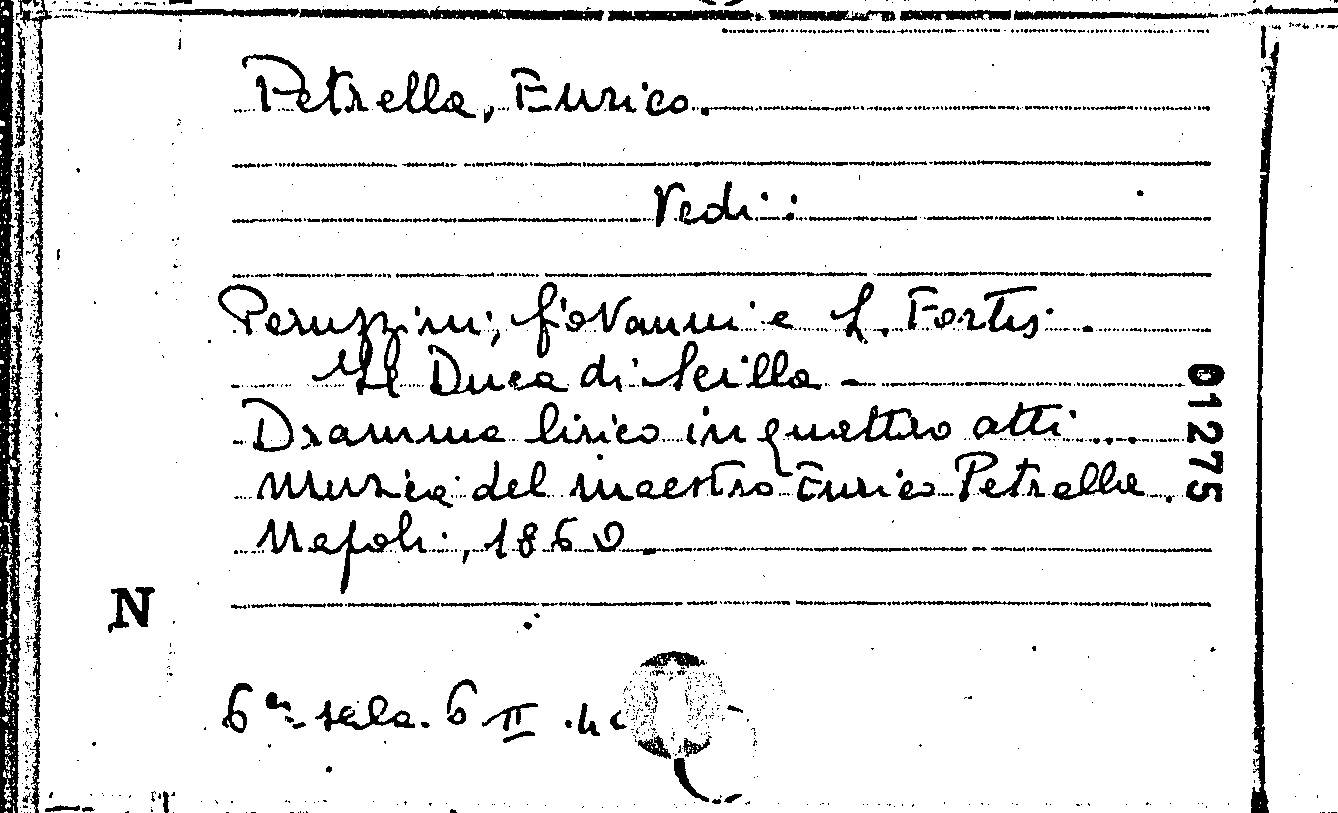 Petrella, Enrico.
Vedi:
Peruzzini, Giovanni e L. Fortis.
Il Duca di Scilla -
Dramma lirico in quattro atti ...
Musica del maestro Enrico Petrella.
Napoli, 1860.
01275
N
6ª sala. 6 II